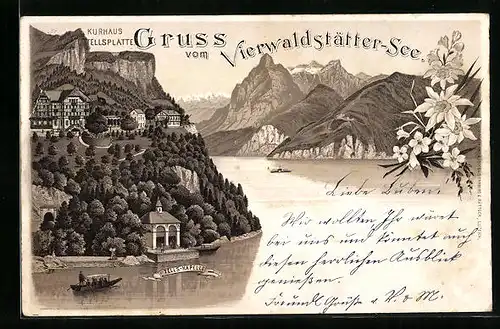 KURHAUS
TELLSPLATTE
Gruss
vom
Vierwaldstätter-See.
TELLS-KAPELLE
Liebe Buben!
Wir wollten Ihr wäret
bei uns und könntet auch
diesen herrlichen Ausblick
genießen.
Freundl Grüße v. V. o M.